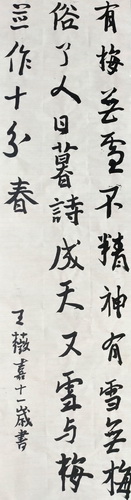 有梅無雪不精神有雪無梅
俗了人日暮詩成天又雪与梅
並作十分春
王薇嘉十一歲書